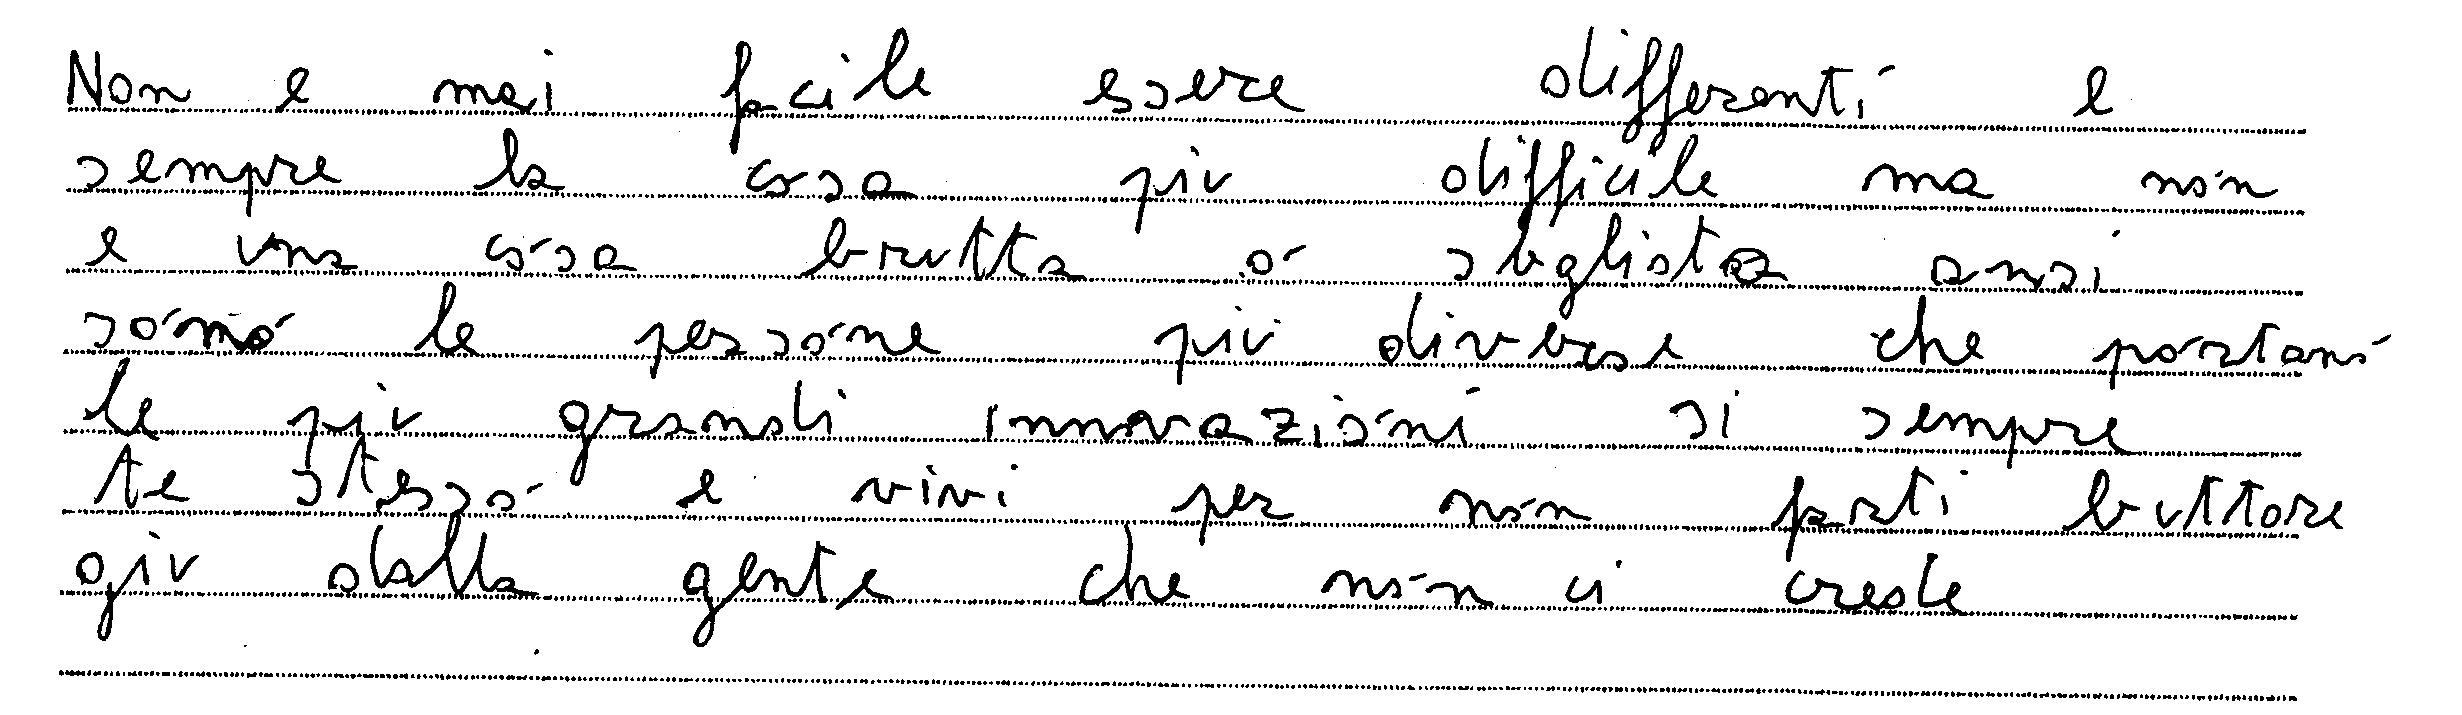 Non e mai facile essere differenti e
sempre la cosa piu difficile ma non
e una cosa brutta o sbgliata ansi
sono le persone piu diverse che portano
le piu grandi innovazioni si sempre
te stesso e vivi per non farti buttare
giu dalla gente che non ci crede